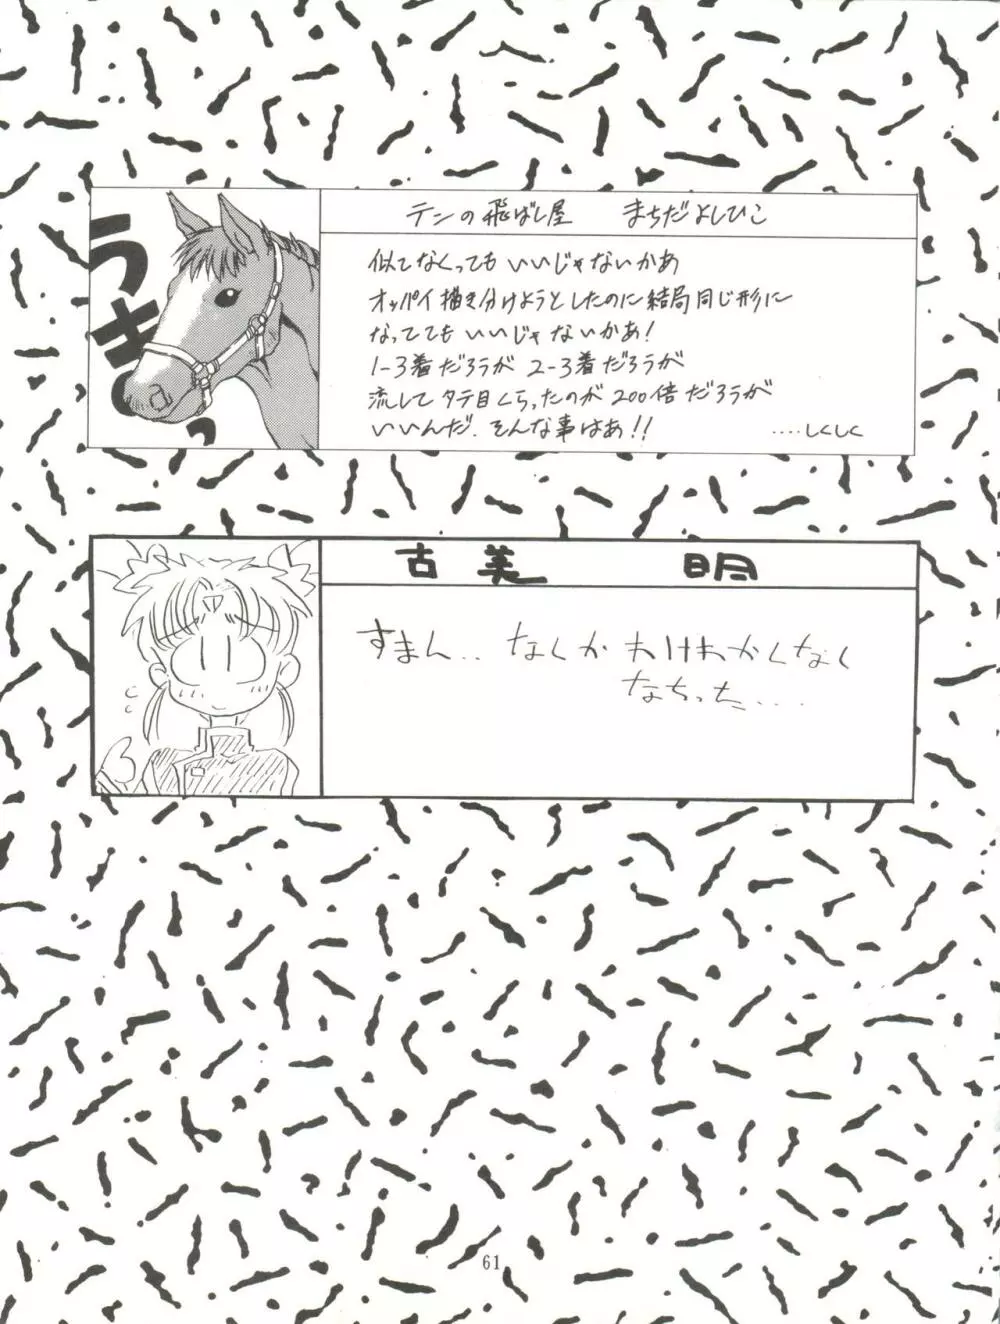 うきっ
テンの飛ばし屋 まちだよしひこ
似てなくってもいいじゃないかあ
オッパイ描き分けようとしたのに結局同じ形に
なっててもいいじゃないかあ!
1-3着だろうが 2-3着だろうが
流してタテ目くらったのが200倍だろうが
いいんだ.そんな事はあ!!
....しくしく
古美 明
すまん.. なんか わけわかんなく
なちった....
61